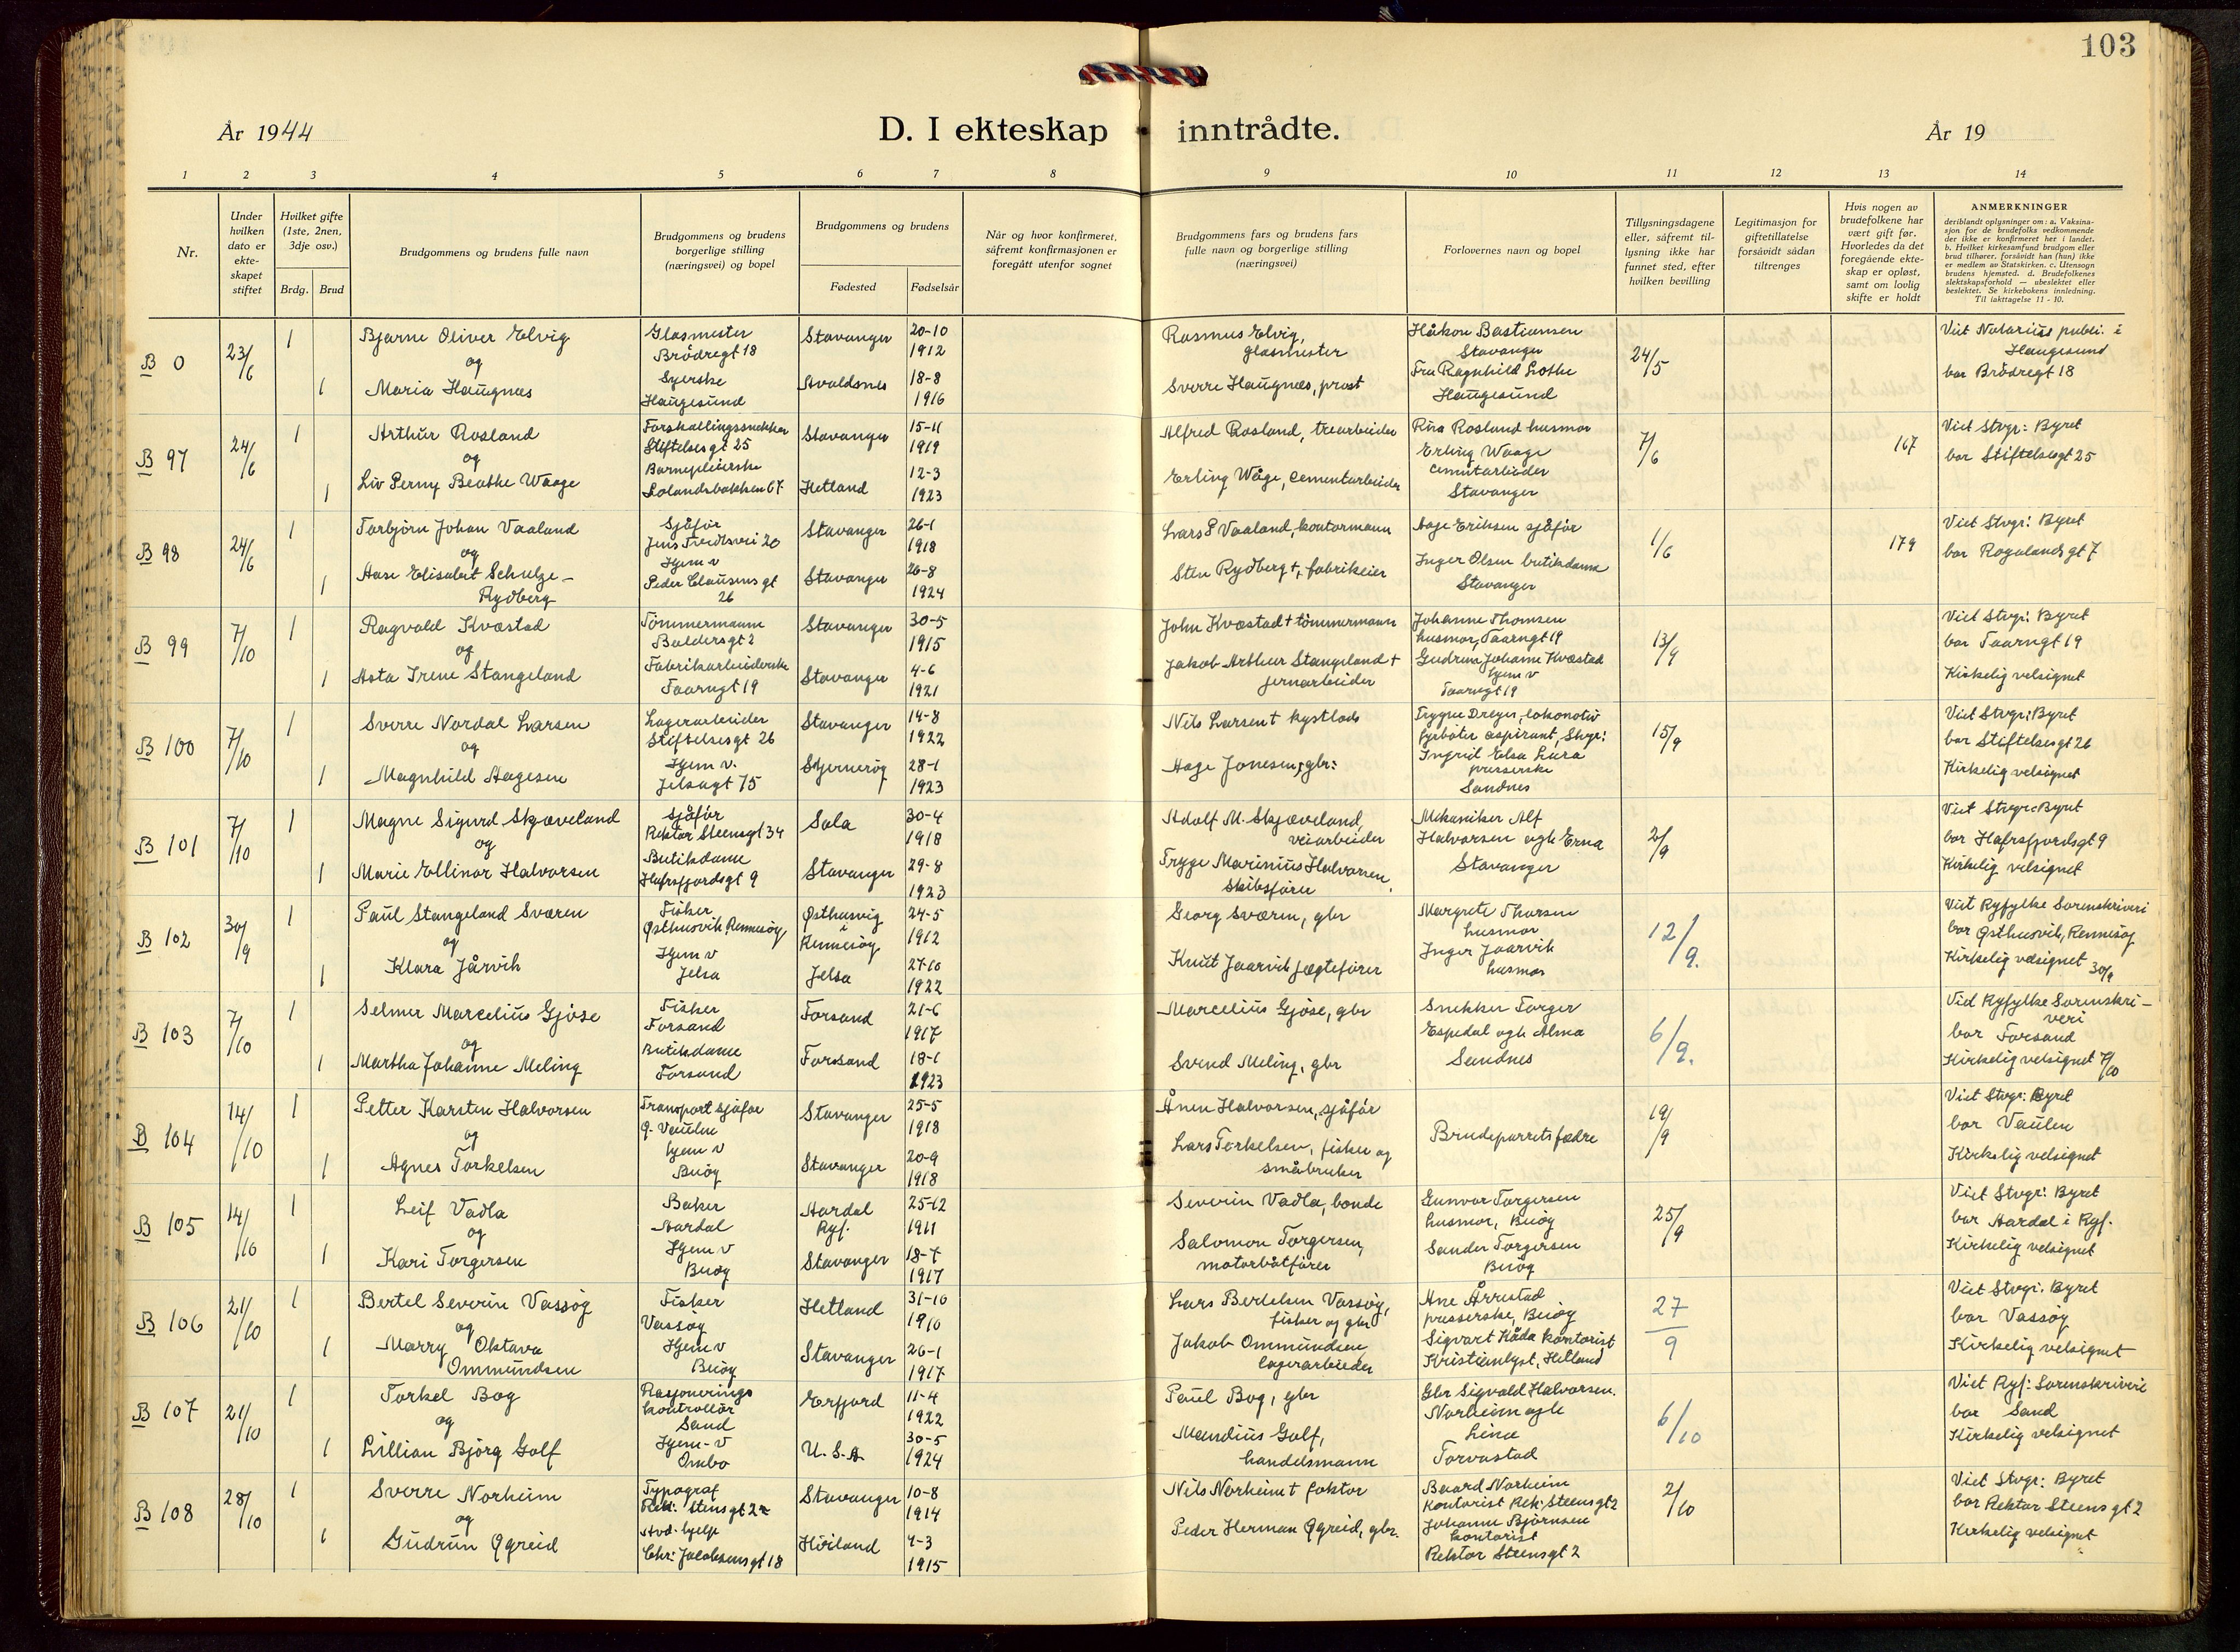 103
År 1944
D. I ekteskap inntrådte.
År 19
1 2 3 4 5 6 7 8 9 10 11 12 13 14
Nr.
Under hvilken dato er ekte-skapet stiftet
Hvilket gifte (1ste, 2nen, 3dje osv.)
Brdg. Brud
Brudgommens og brudens fulle navn
Brudgommens og brudens borgerlige stilling (næringsvei) og bopel
Brudgommens og brudens
Fødested Fødselsår
Når og hvor konfirmeret, såfremt konfirmasjonen er foregått utenfor sognet
Brudgommens fars og brudens fars fulle navn og borgerlige stilling (næringsvei)
Forlovernes navn og bopel
Tillysningsdagene eller, såfremt til-lysning ikke har funnet sted, efter hvilken bevilling
Legitimasjon for giftetillatelse forsåvidt sådan tiltrenges
Hvis nogen av brudefolkene har vært gift før. Hvorledes da det foregående ekte-skap er opløst, samt om lovlig skifte er holdt
ANMERKNINGER
deriblandt oplysninger om: a. Vaksina-sjon for de brudefolks vedkommende der ikke er konfirmeret her i landet. b. Hvilket kirkesamfund brudgom eller brud tilhører, forsåvidt han (hun) ikke er medlem av Statskirken. c. Utensogn brudens hjemsted. d. Brudefolkenes slektskapsforhold — ubeslektet eller beslektet. Se kirkebokens innledning. Til iakttagelse 11 - 10.
B 0 23/6 1 Bjarne Oliver Elvig Glasmester Brödregt 18 Stavanger 20-10 1912 Rasmus Elvig, glasmester Håkon Bastiansen Stavanger 24/5 Viet Notarius publ. i Haugesund
og
1 Maria Haugnæs Syerske Haugesund Avaldsnes 18-8 1916 Sverre Haugnæs, prost Fru Ragnhild Lothe Haugesund bor Brödregt 18
B 97 24/6 1 Arthur Rosland Forskallingssnekker Stiftelsesgt 25 Stavanger 15-11 1919 Alfred Rosland, trearbeider Rina Rosland husmor 7/6 167 Viet Stvgr: Byret
og
1 Liv Perny Beathe Waage Barnepleierske Solandsbakken 67 Hetland 12-3 1923 Erling Våge, cementarbeider Erling Waage cementarbeider Stavanger bor Stiftelsesgt 25
B 98 24/6 1 Torbjörn Johan Vaaland Sjåför Jens Tvedtsvei 20 Stavanger 26-1 1918 Lars P Vaaland, kontormann Aage Eriksen sjåför 1/6 179 Viet Stvgr: Byret
og
1 Aase Elisabet Schulze-Rydberg Hjem v Peder Clausens gt 26 Stavanger 26-8 1924 Sten Rydberg †, fabrikeier Inger Olsen butikdame Stavanger bor Rogalandsgt 7
B 99 7/10 1 Ragvald Kvæstad Tömmermann Baldersgt 2 Stavanger 30-5 1915 John Kvæstad † tömmermann Johanne Thomsen husmor, Taarngt 19 13/9 Viet Stvgr: Byret
og
1 Asta Irene Stangeland Fabrikarbeiderske Taarngt 19 Stavanger 4-6 1921 Jakob Arthur Stangeland † jernarbeider Gudrun Johanne Kvæstad hjem v Taarngt 19 bor Taarngt 19 Kirkelig velsignet
B 100 7/10 1 Sverre Nordal Larsen Lagerarbeider Stiftelsesgt 26 Stavanger 14-8 1922 Nils Larsen † kystlods Trygve Dreyer, lokomotiv fyrböter aspirant, Stvgr: 15/9 Viet Stvgr: Byret
og
1 Magnhild Aagesen Hjem v. Jelsagt 75 Sjernerög 28-1 1923 Aage Jonesen, gbr: Ingrid Elsa Lura presserske Sandnes bor Stiftelsesgt 26 Kirkelig velsignet
B 101 7/10 1 Magne Sigurd Skjæveland Sjåför Rektor Steensgt 34 Sola 30-4 1918 Adolf M. Skjæveland, veiarbeider Mekaniker Alf Halvorsen ogh Erna Stavanger 2/9 Viet Stvgr: Byret
og
1 Marie Ellinor Halvorsen Butikdame Hafrsfjordsgt 9 Stavanger 29-8 1923 Trygve Marinius Halvorsen, Skibsförer bor Hafrsfjordsgt 9 Kirkelig velsignet
B 102 30/9 1 Paul Stangeland Sværen Fisker Østhusvik Rennesöy Østhusvig i Rennesöy 24-5 1912 Georg Sværen, gbr Margrete Thorsen husmor 12/9. Viet Ryfylke Sorenskriveri
og
1 Klara Jårvik Hjem v Jelsa Jelsa 27-10 1922 Knut Jaarvik jægtefører Inger Jaarvik husmor bor Østhusvik, Rennesöy Kirkelig velsignet 30/9
B 103 7/10 1 Selmer Marcelius Gjöse Fisker Forsand Forsand 21-6 1917 Marcelius Gjöse, gbr Snekker Torger Espedal ogh Alma Sandnes 6/9. Vid Ryfylke Sorenskriveri
og
1 Martha Johanne Meling Butikdame Forsand Forsand 18-1 1923 Svend Meling, gbr bor Forsand Kirkelig velsignet 7/10
B 104 14/10 1 Petter Karsten Halvorsen Transport sjåför g. Vaulen Stavanger 25-5 1918 Ånen Halvorsen, sjåför Brudeparrets fædre 19/9 Viet Stvgr: Byret
og
1 Agnes Torkelsen hjem v Buöy Stavanger 20-9 1918 Lars Torkelsen, fisker og småbruker bor Vaulen Kirkelig velsignet
B 105 14/10 1 Leif Vadla Baker Aardal Aardal Ryf. 25-12 1911 Severin Vadla, bonde Gunvor Torgersen husmor, Buöy 25/9 Viet Stvgr: Byret
og
1 Kari Torgersen Hjem v Buöy Stavanger 18-7 1917 Salomon Torgersen, motorbåtförer Sander Torgersen Buöy bor Aardal i Ryf. Kirkelig velsignet
B 106 21/10 1 Bertel Severin Vassöy Fisker Vassöy Hetland 31-10 1910 Lars Bertelsen Vassöy, fisker og gbr Ane Årrestad presserske, Buöy 27/9 Viet Stvgr. Byret
og
1 Marry Oktava Ommundsen Hjem v Buöy Stavanger 26-1 1917 Jakob Ommundsen, lagerarbeider Sigvart Kåda kontorist Kristianlyst, Hetland bor Vassöy Kirkelig velsignet
B 107 21/10 1 Torkel Bog Rasjonerings kontrollör Sand Erfjord 11-4 1922 Paul Bog, gbr Gbr Sigvald Halvorsen. Norheim ogh Lina Torvastad 6/10 Viet Ryf: Sorenskriveri
og
1 Lillian Björg Golf Hjem-v Ombo U.S.A. 30-5 1924 Mandius Golf, handelsmann bor Sand Kirkelig velsignet
B 108 28/10 1 Sverre Norheim Typograf Rek: Stensgt 2 Stavanger 10-8 1914 Nils Norheim † faktor Baard Norheim kontorist Rek: Steensgt 2 2/10 Viet Stvgr: Byret
og
1 Gudrun Qgreid Avd. hjelp Chr: Jacobsensgt 18 Höiland 4-3 1915 Peder Herman Qgreid, gbr. Johanne Björnsen kontorist Rektor Steensgt 2 bor Rektor Steens gt 2 Kirkelig velsignet